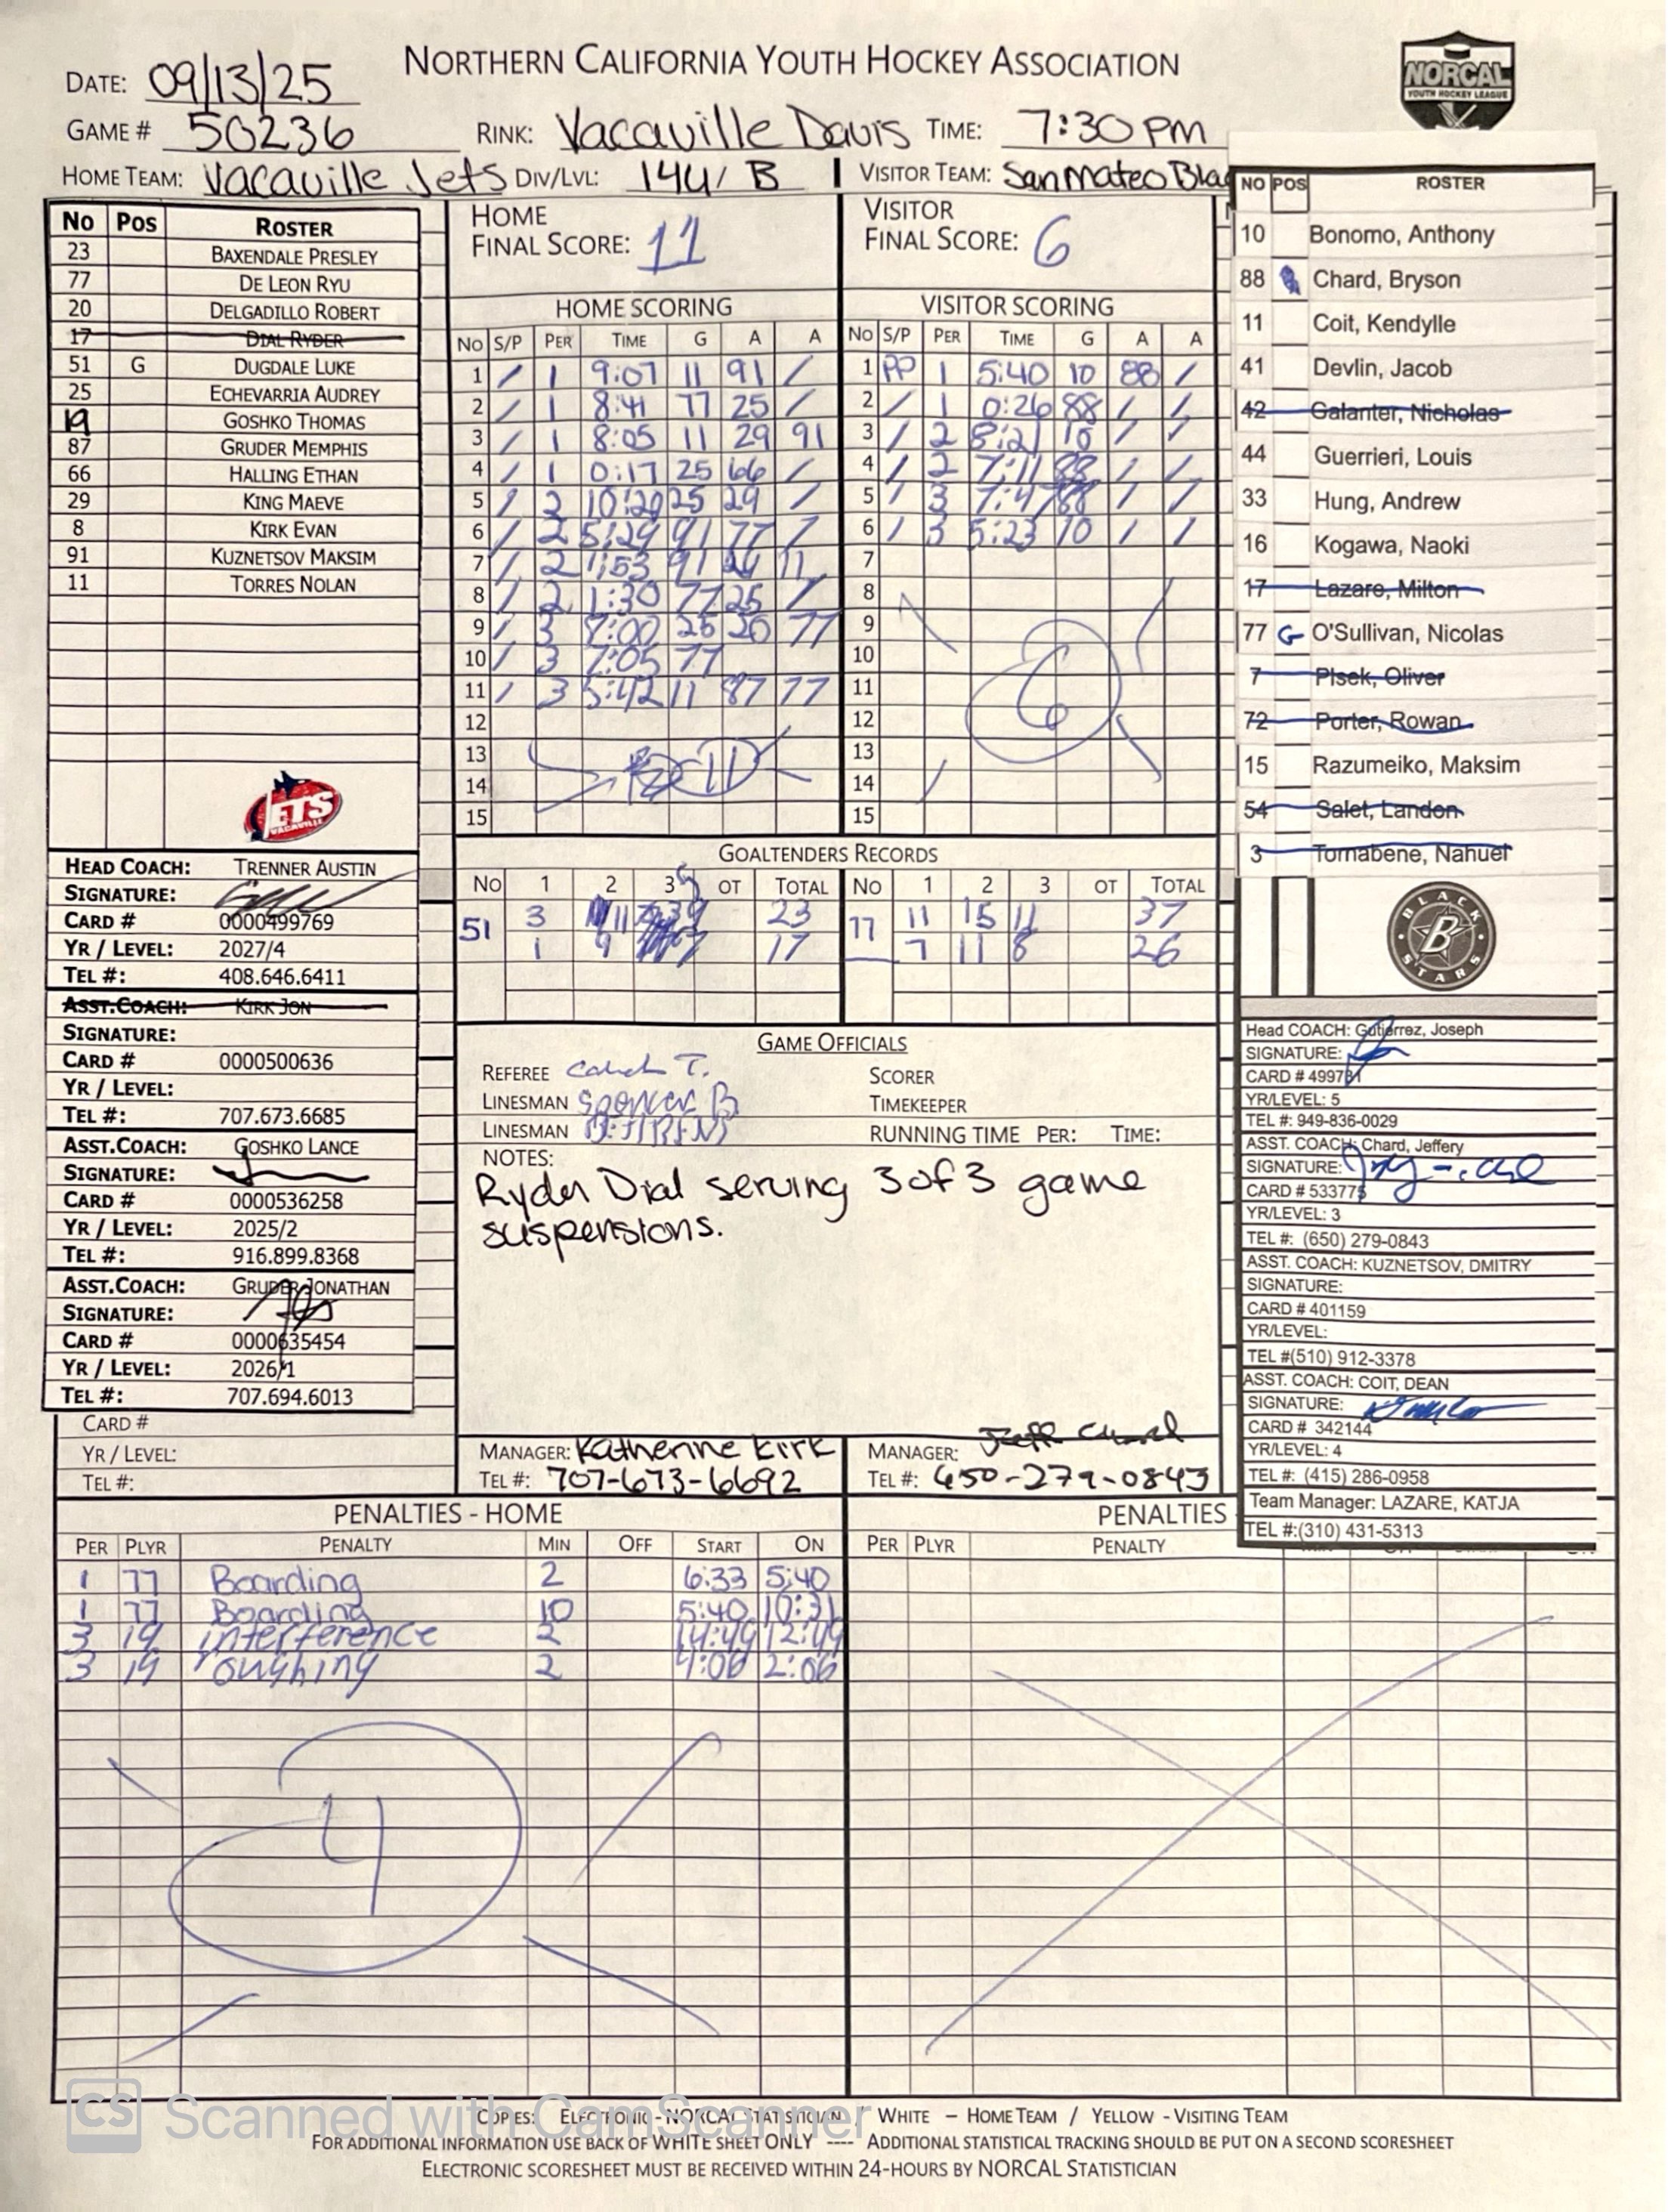 NORTHERN CALIFORNIA YOUTH HOCKEY ASSOCIATION
NORCAL
YOUTH HOCKEY LEAGUE
DATE: 09/13/25
GAME # 50236 RINK: Vacaville Davis TIME: 7:30 PM
HOME TEAM: Vacaville Jets DIV/LVL: 14U/ B VISITOR TEAM: San Mateo Blac
No Pos ROSTER
23 BAXENDALE PRESLEY
77 DE LEON RYU
20 DELGADILLO ROBERT
17 DIAL RYDER
51 G DUGDALE LUKE
25 ECHEVARRIA AUDREY
19 GOSHKO THOMAS
87 GRUDER MEMPHIS
66 HALLING ETHAN
29 KING MAEVE
8 KIRK EVAN
91 KUZNETSOV MAKSIM
11 TORRES NOLAN
JETS
VACAVILLE
HEAD COACH: TRENNER AUSTIN
SIGNATURE:
CARD # 0000499769
YR / LEVEL: 2027/4
TEL #: 408.646.6411
ASST.COACH: KIRK JON
SIGNATURE:
CARD # 0000500636
YR / LEVEL:
TEL #: 707.673.6685
ASST.COACH: GOSHKO LANCE
SIGNATURE:
CARD # 0000536258
YR / LEVEL: 2025/2
TEL #: 916.899.8368
ASST.COACH: GRUDER JONATHAN
SIGNATURE:
CARD # 0000635454
YR / LEVEL: 2026/1
TEL #: 707.694.6013
CARD #
YR / LEVEL:
TEL #:
HOME
FINAL SCORE: 11
HOME SCORING
No S/P PER TIME G A A
1 / 1 9:07 11 91 /
2 / 1 8:41 77 25 /
3 / 1 8:05 11 29 91
4 / 1 0:17 25 66 /
5 / 2 10:20 25 29 /
6 / 2 5:29 91 77 /
7 / 2 1:53 91 11
8 / 2 1:30 77 25 /
9 / 3 :00 25 20 77
10 / 3 7:05 77
11 / 3 5:42 11 87 77
12
13
14
15
11
VISITOR
FINAL SCORE: 6
VISITOR SCORING
No S/P PER TIME G A A
1 PP 1 5:40 10 88 /
2 / 1 0:26 88 / /
3 / 2 8:21 10 / /
4 / 2 7:11 88 / /
5 / 3 7:47 88 / /
6 / 3 5:23 10 / /
7
8
9
10
11
12
13
14
15
6
GOALTENDERS RECORDS
No 1 2 3 OT TOTAL No 1 2 3 OT TOTAL
51 3 11 9 23 77 11 15 11 37
1 9 7 17 7 11 8 26
GAME OFFICIALS
REFEREE T. SCORER
LINESMAN Spencer B TIMEKEEPER
LINESMAN RUNNING TIME PER: TIME:
NOTES:
Ryder Dial serving 3 of 3 game
suspensions.
MANAGER: Katherine Kirk
TEL #: 707-673-6692
MANAGER: Jeff Chard
TEL #: 650-279-0843
NO POS ROSTER
10 Bonomo, Anthony
88 Chard, Bryson
11 Coit, Kendylle
41 Devlin, Jacob
42 Galanter, Nicholas
44 Guerrieri, Louis
33 Hung, Andrew
16 Kogawa, Naoki
17 Lazare, Milton
77 G O'Sullivan, Nicolas
7 Plsek, Oliver
72 Porter, Rowan
15 Razumeiko, Maksim
54 Salet, Landon
3 Tornabene, Nahuel
BLACK
B
STARS
Head COACH: Gutierrez, Joseph
SIGNATURE:
CARD # 499731
YR/LEVEL: 5
TEL #: 949-836-0029
ASST. COACH: Chard, Jeffery
SIGNATURE:
CARD # 533775
YR/LEVEL: 3
TEL #: (650) 279-0843
ASST. COACH: KUZNETSOV, DMITRY
SIGNATURE:
CARD # 401159
YR/LEVEL:
TEL #(510) 912-3378
ASST. COACH: COIT, DEAN
SIGNATURE:
CARD # 342144
YR/LEVEL: 4
TEL #: (415) 286-0958
Team Manager: LAZARE, KATJA
TEL #:(310) 431-5313
PENALTIES - HOME
PER PLYR PENALTY MIN OFF START ON
1 77 Boarding 2 6:33 5:40
1 77 Boarding 10 5:40 10:31
3 19 interference 2 14:49 12:49
3 19 roughing 2 4:06 2:06
4
PENALTIES
PER PLYR PENALTY
CS Scanned with CamScanner
COPIES: ELECTRONIC - NORCAL STATISTICIAN / WHITE – HOME TEAM / YELLOW - VISITING TEAM
FOR ADDITIONAL INFORMATION USE BACK OF WHITE SHEET ONLY ---- ADDITIONAL STATISTICAL TRACKING SHOULD BE PUT ON A SECOND SCORESHEET
ELECTRONIC SCORESHEET MUST BE RECEIVED WITHIN 24-HOURS BY NORCAL STATISTICIAN